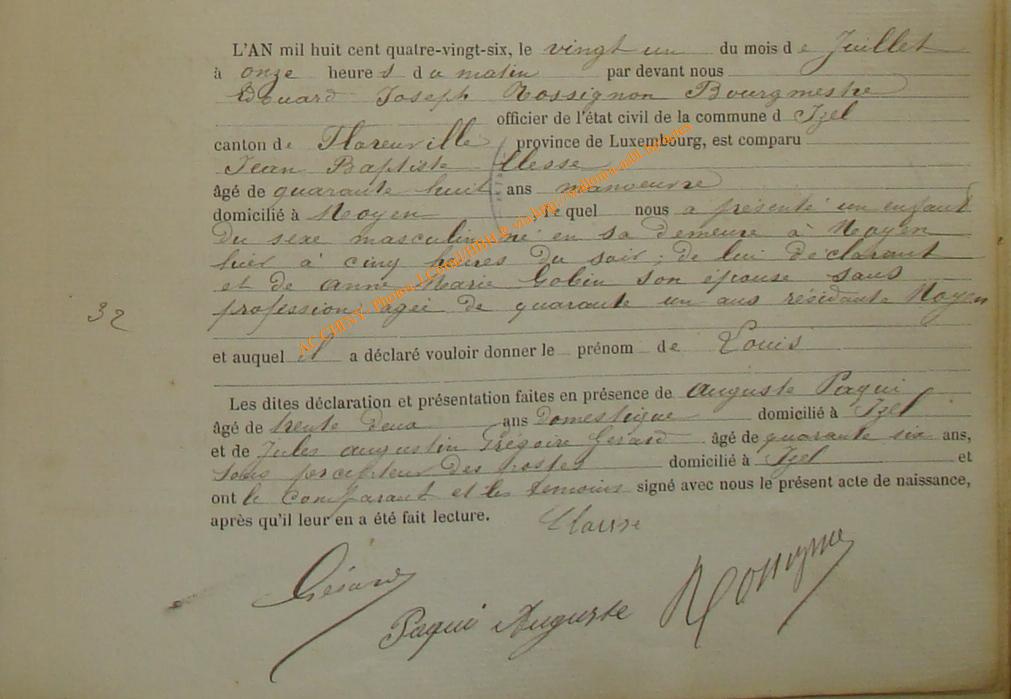 L'AN mil huit cent quatre-vingt-six, le vingt un du mois de Juillet
à onze heures du matin par devant nous
Edouard Joseph Rossignon Bourgmestre
officier de l'état civil de la commune d Izel
canton de Florenville province de Luxembourg, est comparu
Jean Baptiste Clesse
âgé de quarante huit ans manoeuvre
domicilié à Moyen, lequel nous a présenté un enfant
du sexe masculin né en sa demeure à Moyen
hier à cinq heures du soir ; de lui déclarant
et de anne Marie Gobin son épouse sans
profession, agée de quarante un ans résidante Moyen
32
et auquel il a déclaré vouloir donner le prénom de Louis
Les dites déclaration et présentation faites en présence de auguste Paqui
âgé de trente deux ans Domestique domicilié à Izel
et de Jules augustin Grégoire Gerard âgé de quarante six ans,
sous percepteur des postes domicilié à Izel et
ont le comparant et les temoins signé avec nous le présent acte de naissance,
après qu'il leur en a été fait lecture.
Gérard
Paqui Auguste
Rossignon